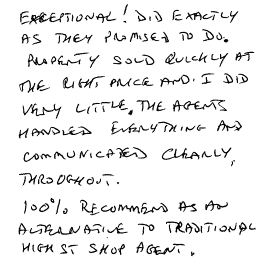 EXCEPTIONAL! DID EXACTLY
AS THEY PROMISED TO DO.
PROPERTY SOLD QUICKLY AT
THE RIGHT PRICE AND I DID
VERY LITTLE. THE AGENTS
HANDLED EVERYTHING AND
COMMUNICATED CLEARLY,
THROUGHOUT.
100% RECOMMEND AS AN
ALTERNATIVE TO TRADITIONAL
HIGH ST SHOP AGENT.